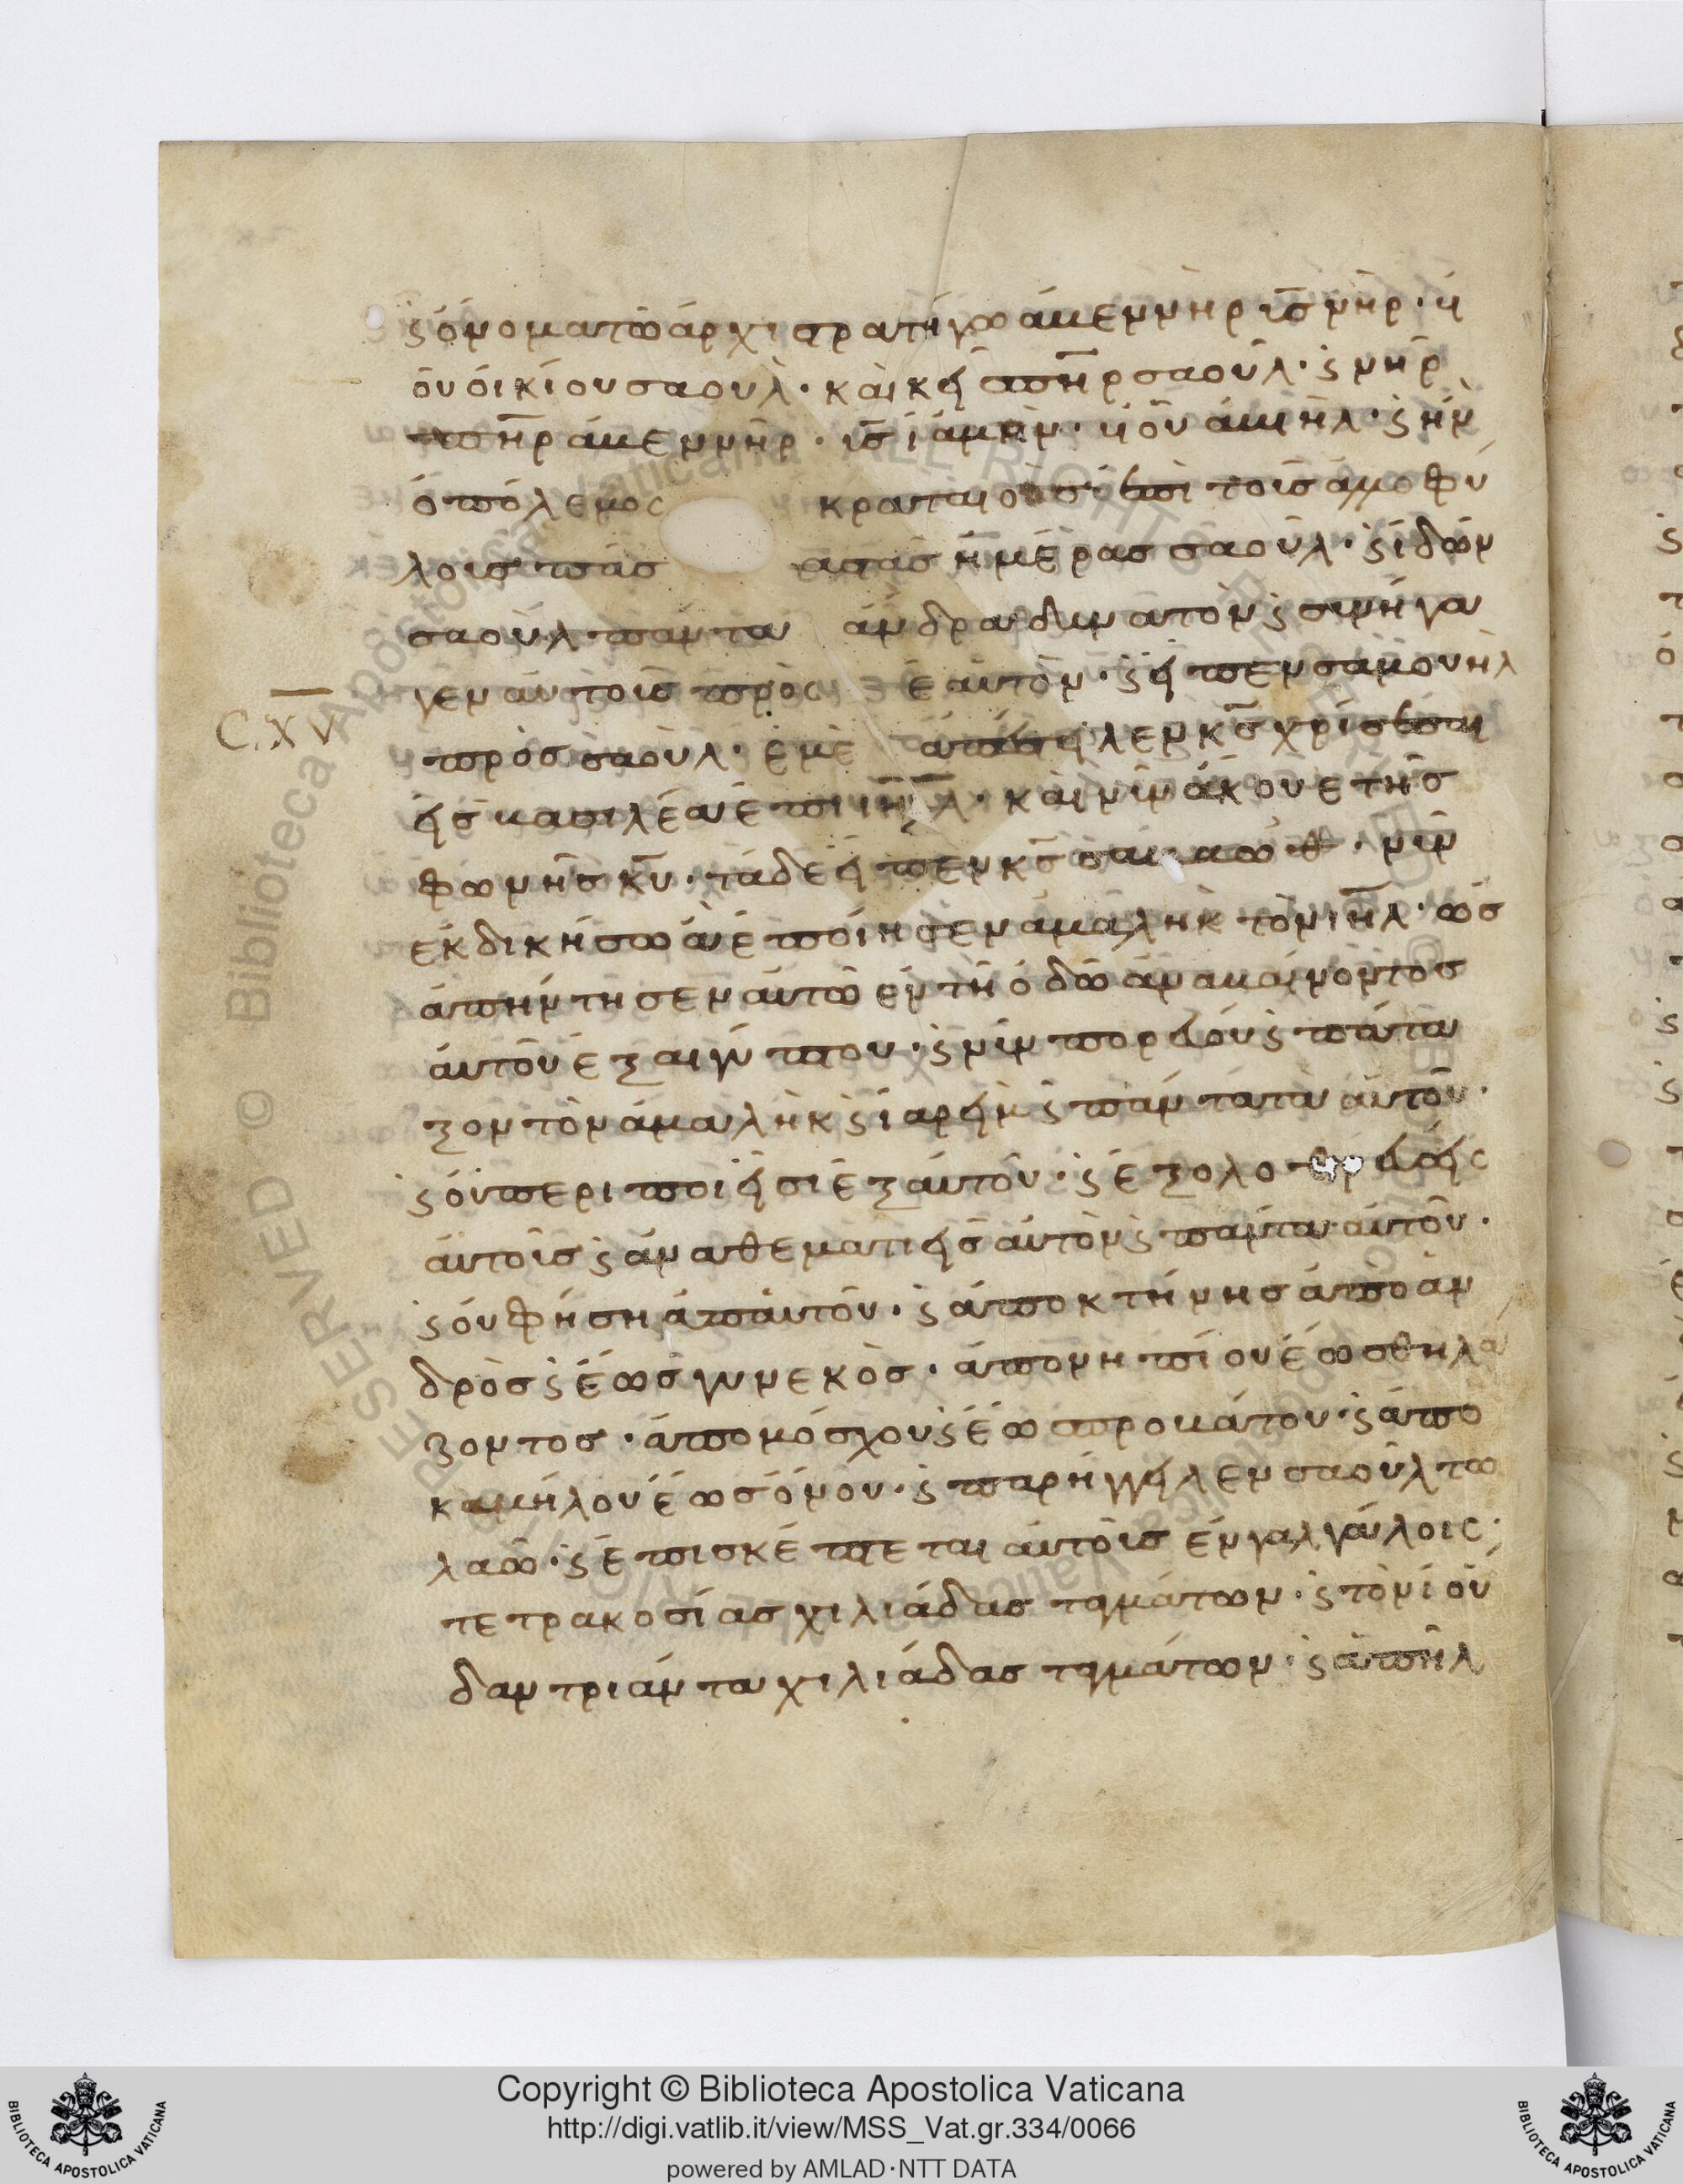 ϛ ὄνομα τῶ ἀρχιστρατίγω ἀβεννηρ υἱ̅ς νὴρ· υἱ
οῦ οἰκίου σαουλ̀· καὶ κεί σ πη̅ρ σαοῦλ· ϛ νηρ̑
πη̅ρ ἀβεννὴρ· υἱ̅ς ἰάμὴν· υἱοῦ ἀβιὴλ· ϛ ἠν̀
ὁ πόλεμος κραταιοὺς ἐπὶ τοῖς ἀλλοφύ
λοις πάσ ασάς ἡμέρας σαούλ· ϛ ἰδών
σαοὺλ πάντα ἄνδρα δυνατὸν ϛ συνήγα
γεν αὐτοῖς πρὸς ἑαυτὸν· ϛ εἶπεν σαμουὴλ
C. XV
πρὸς σαοὺλ· ἐμὲ ἀπέστειλεν κ̅ς χρίσαι
εἰς βασιλέα ἐπὶ ιη̅λ· καὶ νῦν ἄκουε τῆς
φωνῆς κ̅υ· τάδε εἶπεν κ̅ς σαβαώθ· νῦν
ἐκδικήσω ἃ ἐποίησεν ἀμαλὴκ τὸν ιη̅λ· ὡς
ἀπήντησεν αὐτῶ ἐν τῆ ὁδῶ ἀναβαίνοντος
αὐτοῦ ἐξ αιγύπτου· ϛ νῦν πορεύου ϛ πάτα
ξον τὸν ἀμαλὴκ ϛ ἰαρεὶμ ϛ πάντα τὰ αὐτοῦ·
ϛ οὐ περιποιείσι ἐξ αὐτοῦ· ϛ ἐξολοθρεύεις
αὐτοῖς ϛ ἀναθεματιεῖς αὐτὸν ϛ πάντα αὐτοῦ·
ϛ οὐ φήση ἀπ αὐτοῦ· ϛ ἀποκτήνης ἀπὸ ἀν
δρὸς ϛ ἕως γυνεκὸς· ἀπο νηπίου ἕως θηλα
ζοντος· ἀπο μόσχου ϛ ἕω προβάτου· ϛ ἀπο
καμήλου ἕως ὄνου· ϛ παρήγγείλεν σαοὺλ τω
λαῶ· ϛ ἐπισκέπτεται αὐτοῖς ἐν γαλγάλοις·
τετρακοσίας χιλιάδας ταγμάτων· ϛ τὸν ἰού
δαν τριάντα χιλιάδας ταγμάτων· ϛ ἀπῆλ
Copyright © Biblioteca Apostolica Vaticana
http://digi.vatlib.it/view/MSS_Vat.gr.334/0066
powered by AMLAD·NTT DATA
BIBLIOTECA APOSTOLICA VATICANA
BIBLIOTECA APOSTOLICA VATICANA